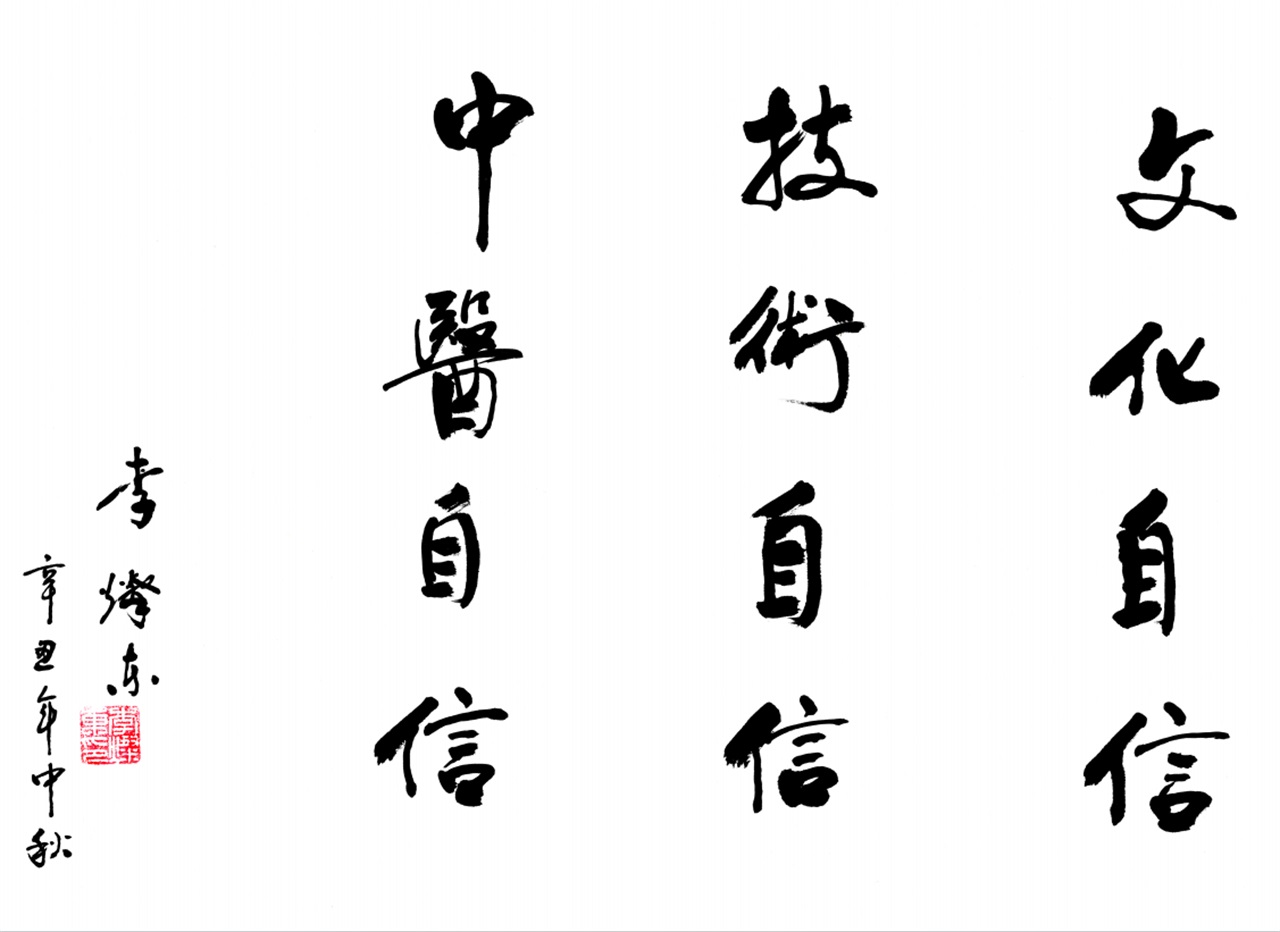 文化自信
技術自信
中醫自信
李燦东
辛丑年中秋